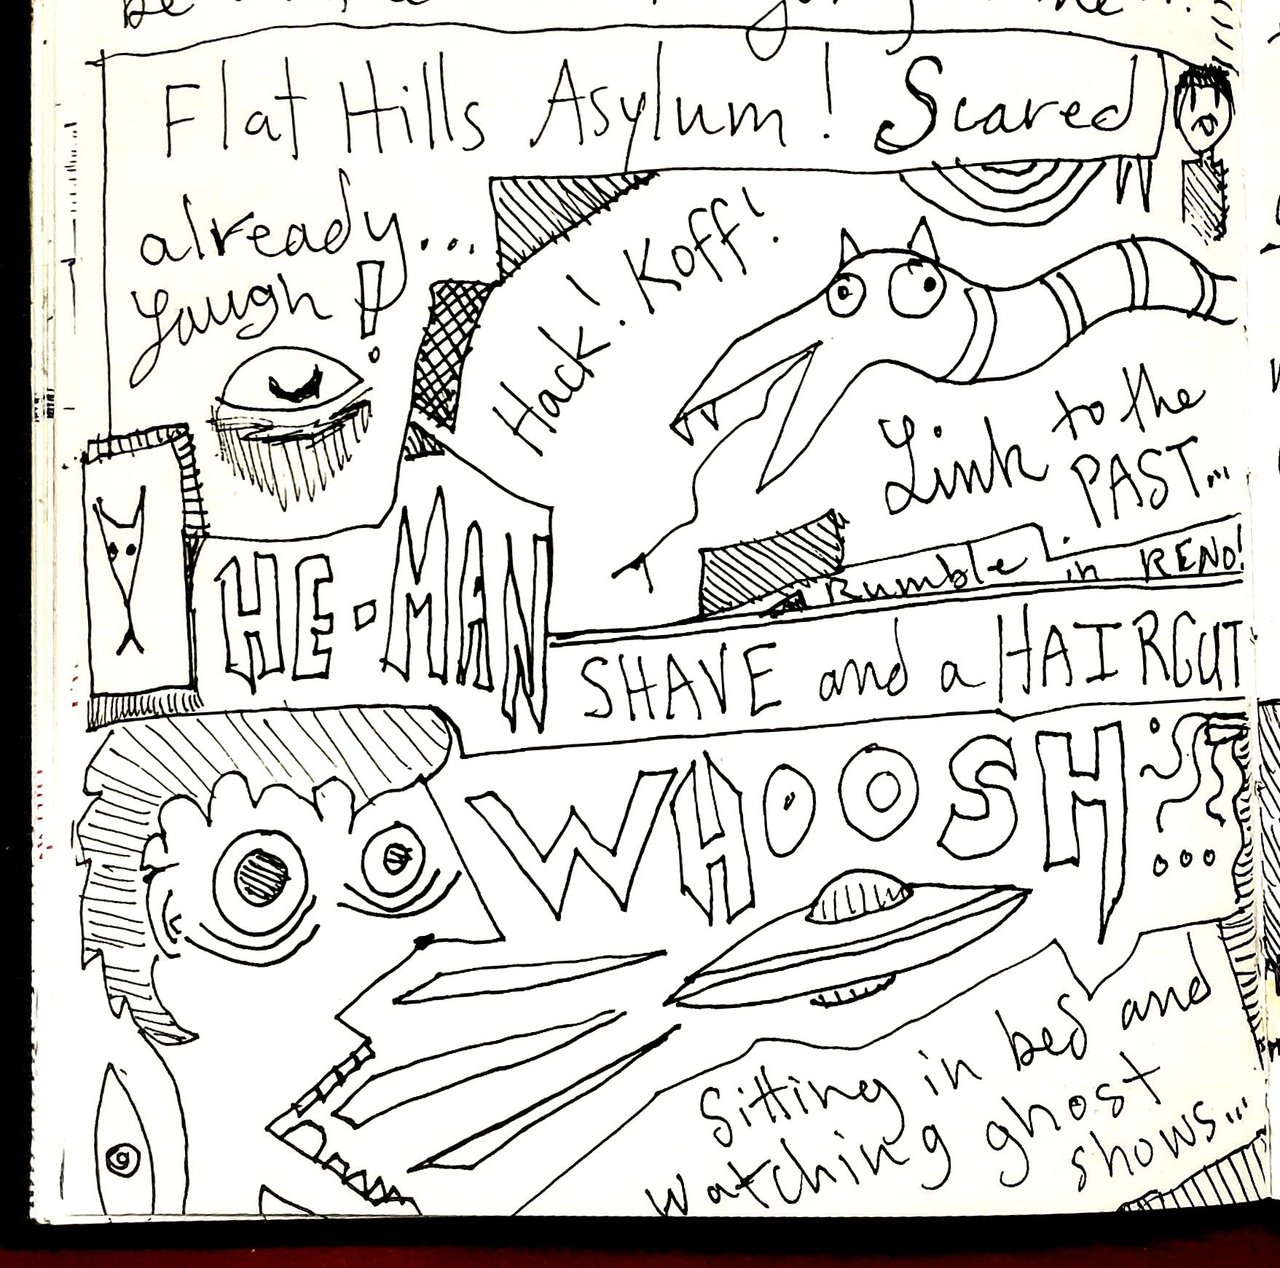 Flat Hills Asylum! Scared
already...
Yaugh!
Hack! Koff!
Link to the
PAST...
Rumble in RENO!
HE-MAN
SHAVE and a HAIRCUT
WHOOSH
...
Sitting in bed and
watching ghost
shows...